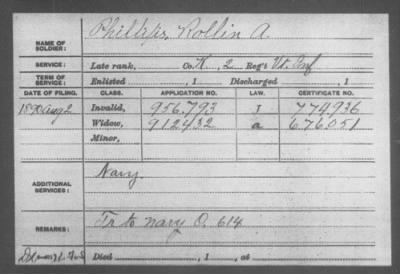 NAME OF SOLDIER: Phillips, Rollin A.
SERVICE: Late rank, Co. K, 2 Reg't Vt. Inf
TERM OF SERVICE: Enlisted , 1 Discharged , 1
DATE OF FILING. CLASS. APPLICATION NO. LAW. CERTIFICATE NO.
1890 Aug 2 Invalid, 956.793 J 774936
Widow, 912432 a 676051
Minor,
ADDITIONAL SERVICES: Navy.
REMARKS: Tr to navy O. 614
Died , 1 , at